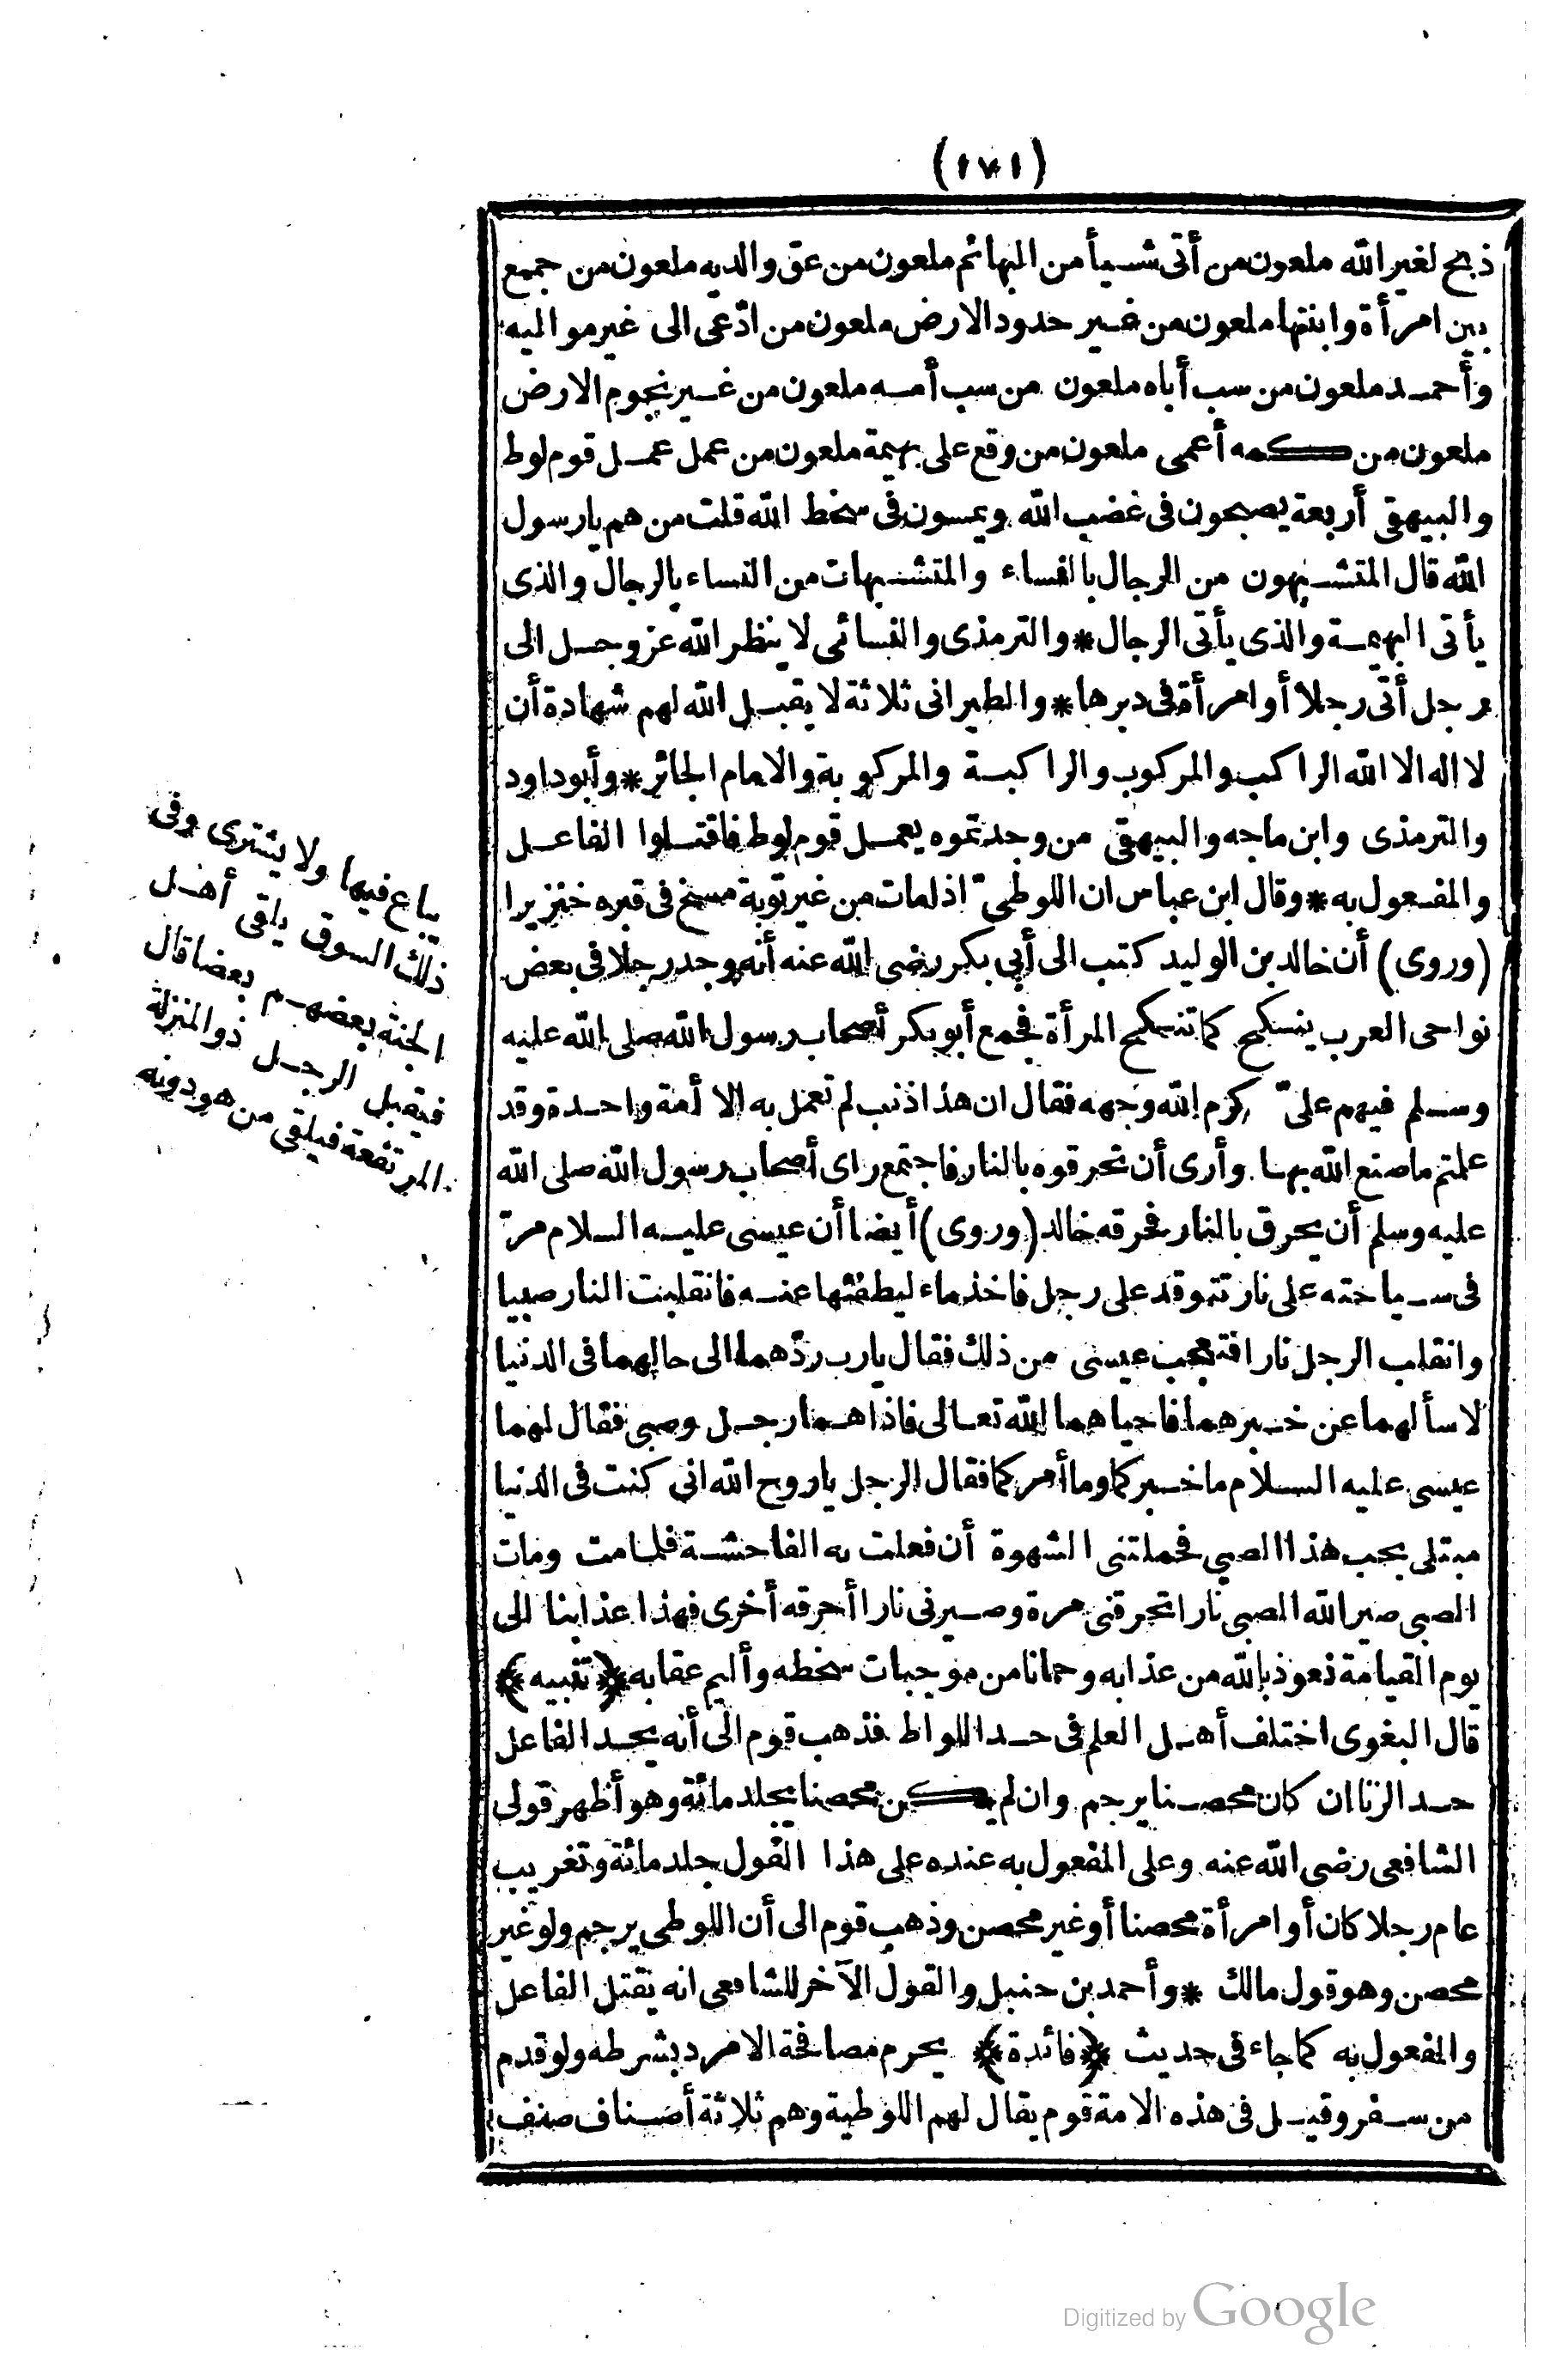 (١٧١)
ذبح لغير الله ملعون من أتى شيأ من البهائم ملعون من عق والديه ملعون من جمع
بين امرأة وابنتها ملعون من غير حدود الارض ملعون من ادّعى الى غير مواليه
وأحمد ملعون من سب أباه ملعون من سب أمه ملعون من غير نجوم الارض
ملعون من كمه أعمى ملعون من وقع على بهيمة ملعون من عمل عمل قوم لوط
والبيهقى أربعة يصبحون فى غضب الله ويمسون فى سخط الله قلت من هم يا رسول
الله قال المتشبهون من الرجال بالنساء والمتشبهات من النساء بالرجال والذى
يأتى البهيمة والذى يأتى الرجال * والترمذى والنسائى لا ينظر الله عز وجل الى
رجل أتى رجلا أو امرأة فى دبرها * والطبرانى ثلاثة لا يقبل الله لهم شهادة أن
لا اله الا الله الراكب والمركوب والراكبة والمركوبة والامام الجائر * وأبو داود
والترمذى وابن ماجه والبيهقى من وجدتموه يعمل قوم لوط فاقتلوا الفاعل
والمفعول به * وقال ابن عباس ان اللوطىّ اذا مات من غير توبة مسخ فى قبره خنزيرا
(وروى) أن خالد بن الوليد كتب الى أبى بكر رضى الله عنه أنه وجد رجلا فى بعض
نواحى العرب ينكح كما تنكح المرأة فجمع أبو بكر أصحاب رسول الله صلى الله عليه
وسلم فيهم علىّ كرم الله وجهه فقال ان هذا ذنب لم تعمل به الا أمة واحدة وقد
علمتم ما صنع الله بها وأرى أن تحرقوه بالنار فاجتمع راى أصحاب رسول الله صلى الله
عليه وسلم أن يحرق بالنار فحرقه خالد (وروى) أيضا أن عيسى عليه السلام مرّ
فى سياحته على نار تتوقد على رجل فاخذ ماء ليطفئها عنه فانقلبت النار صبيا
وانقلب الرجل نارا فتعجب عيسى من ذلك فقال يا رب ردّهما الى حالهما فى الدنيا
لاسألهما عن خبرهما فاحياهما الله تعالى فاذا هما رجل وصبى فقال لهما
عيسى عليه السلام ما خبركما وما أمركما فقال الرجل يا روح الله انى كنت فى الدنيا
مبتلى بحب هذا الصبى فحملتنى الشهوة أن فعلت به الفاحشة فلما مت ومات
الصبى صير الله الصبى نارا تحرقنى مرة وصيرنى نارا أحرقه أخرى فهذا عذابنا الى
يوم القيامة نعوذ بالله من عذابه وحمانا من موجبات سخطه وأليم عقابه ﴿تنبيه﴾
قال البغوى اختلف أهل العلم فى حد اللواط فذهب قوم الى أنه يحد الفاعل
حد الزنا ان كان محصنا يرجم وان لم يكن محصنا يجلد مائة وهو أظهر قولى
الشافعى رضى الله عنه وعلى المفعول به عنده على هذا القول جلد مائة وتغريب
عام رجلا كان أو امرأة محصنا أو غير محصن وذهب قوم الى أن اللوطى يرجم ولو غير
محصن وهو قول مالك * وأحمد بن حنبل والقول الآخر للشافعى انه يقتل الفاعل
والمفعول به كما جاء فى حديث ﴿فائدة﴾ يحرم مصافحة الامرد بشرطه ولو قدم
من سفر وقيل فى هذه الامة قوم يقال لهم اللوطية وهم ثلاثة أصناف صنف
يباع فيها ولا يشترى وفى
ذلك السوق يلقى أهل
الجنة بعضهم بعضا قال
فيقبل الرجل ذو المنزلة
المرتفعة فيلقى من هو دونه
Digitized by Google